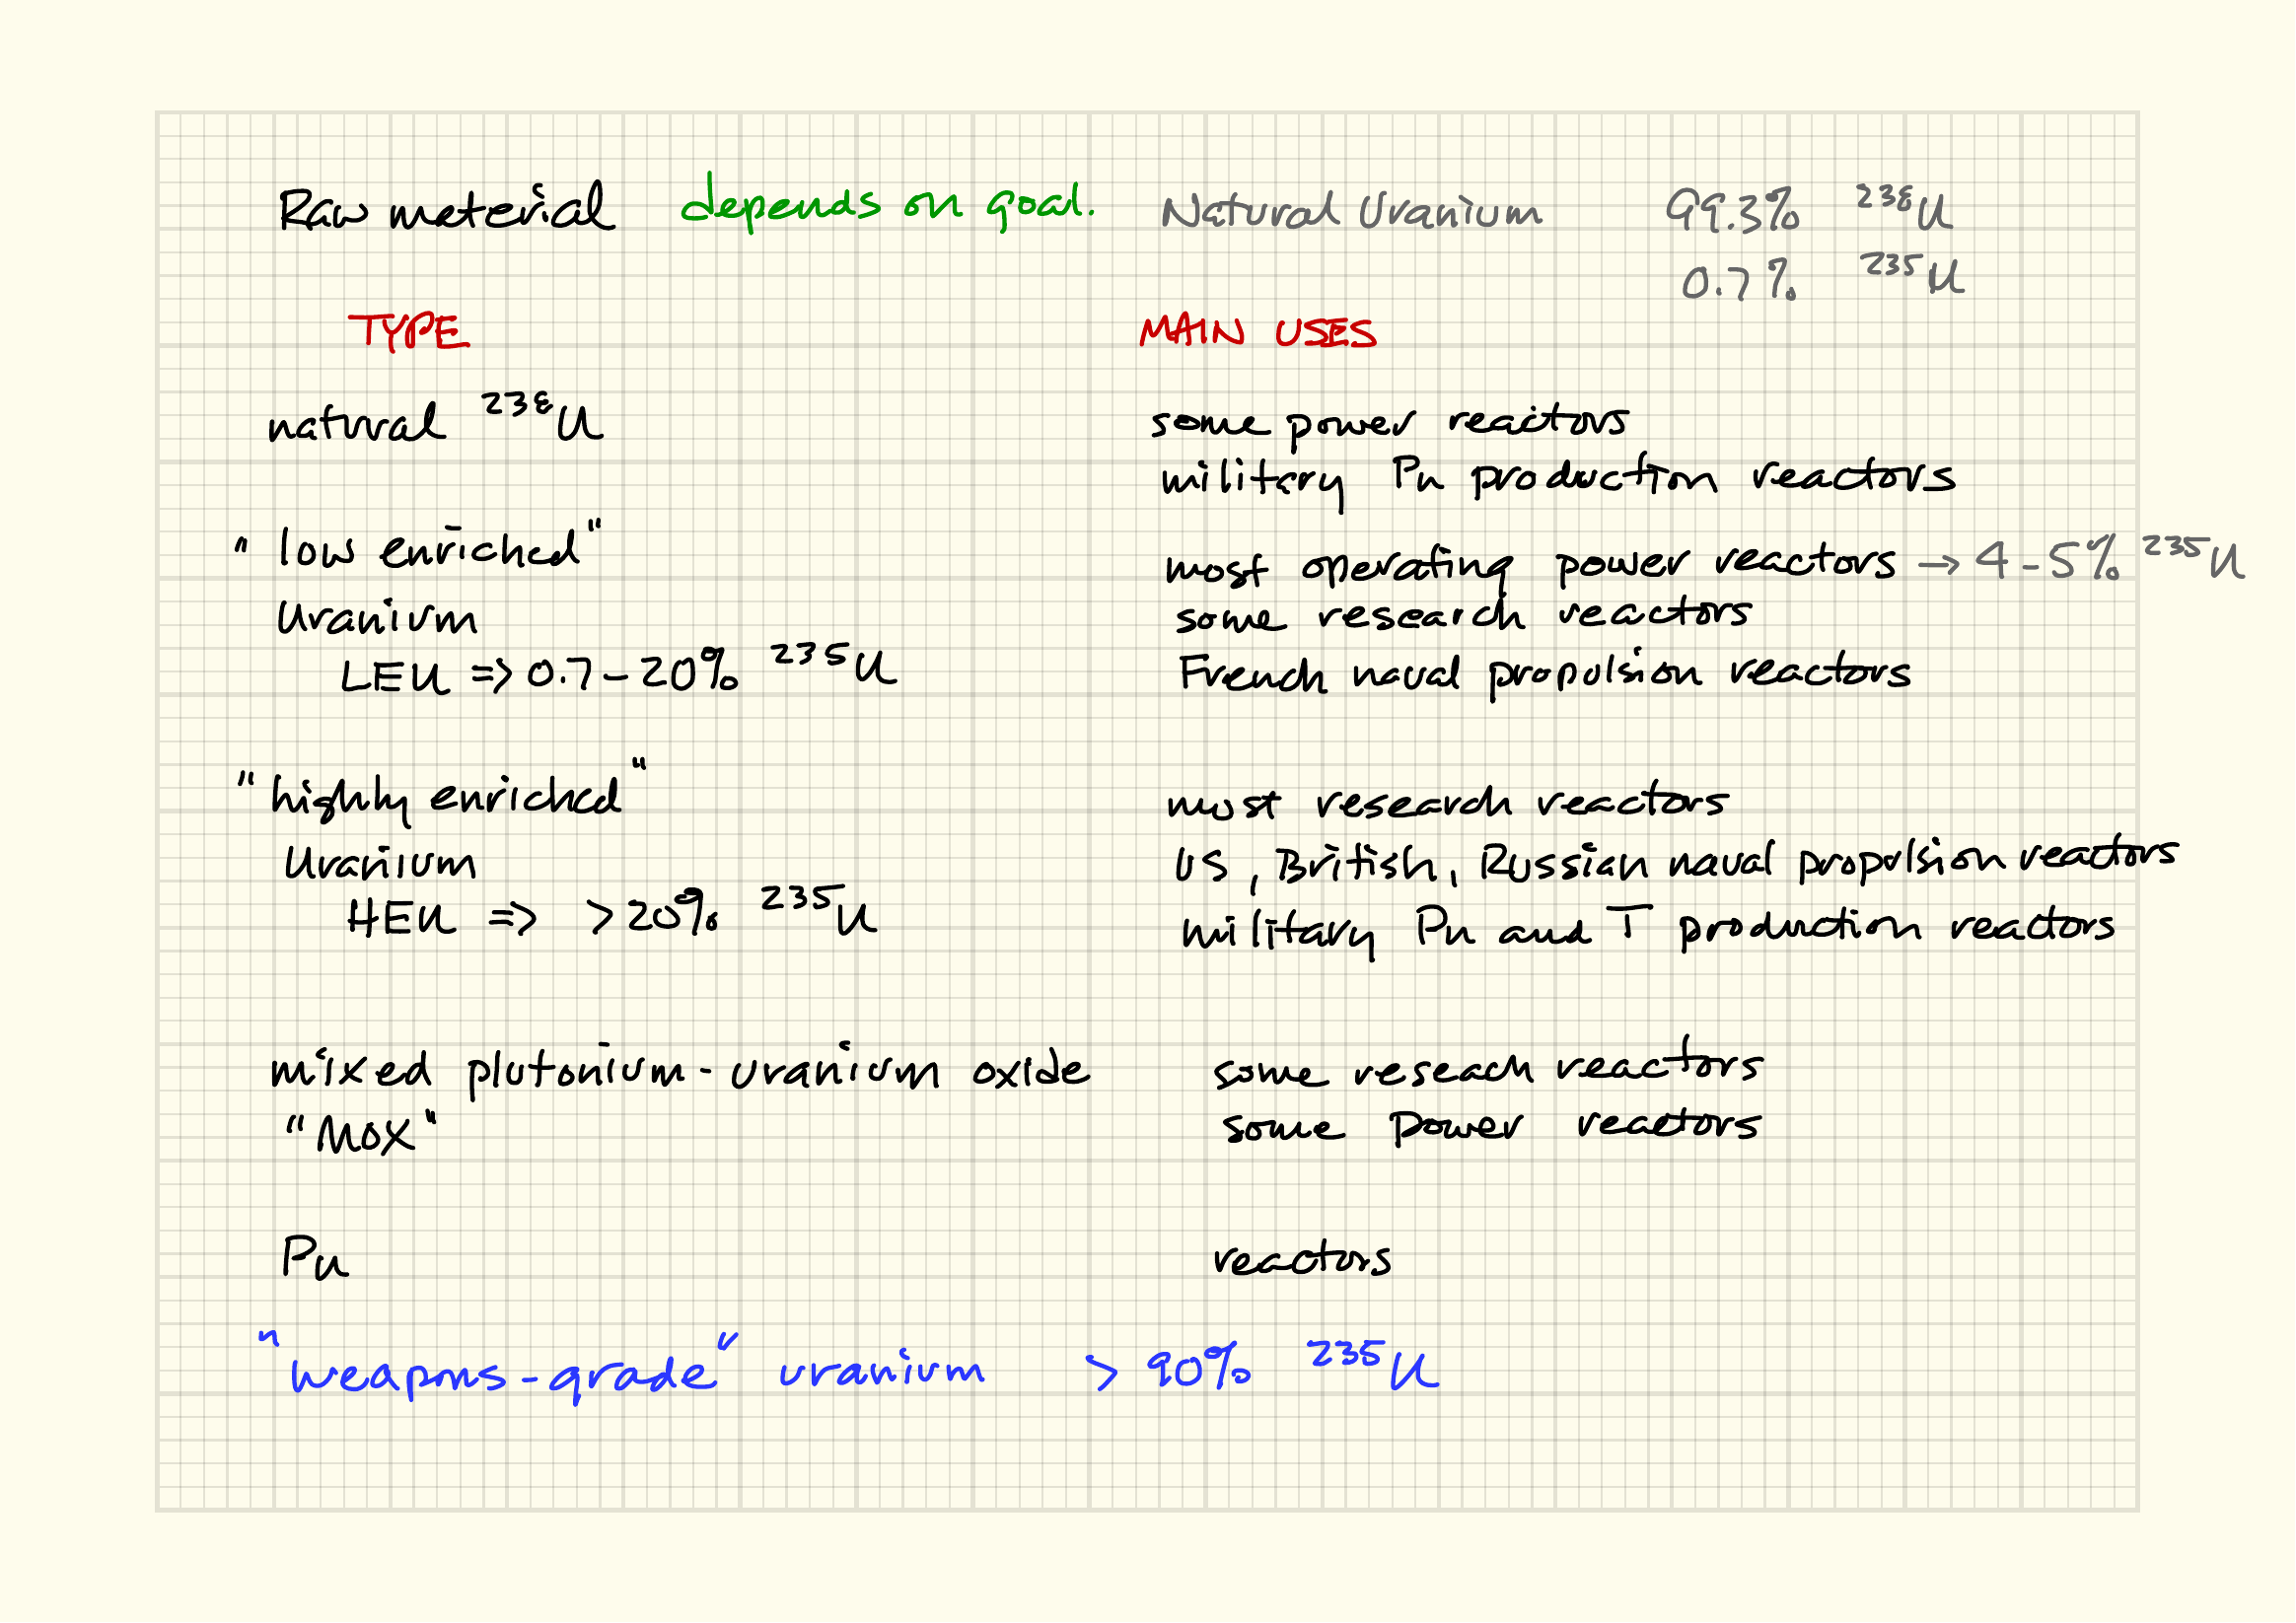 Raw meterial depends on goal. Natural Uranium 99.3% ²³⁸U
0.7% ²³⁵U
TYPE MAIN USES
natural ²³⁸U some power reactors
military Pu production reactors
"low enriched" most operating power reactors → 4-5% ²³⁵U
Uranium some research reactors
LEU => 0.7-20% ²³⁵U French naval propulsion reactors
"highly enriched" most research reactors
Uranium US, British, Russian naval propulsion reactors
HEU => >20% ²³⁵U military Pu and T production reactors
mixed plutonium-uranium oxide some reseach reactors
"MOX" some power reactors
Pu reactors
"weapons-grade" uranium > 90% ²³⁵U